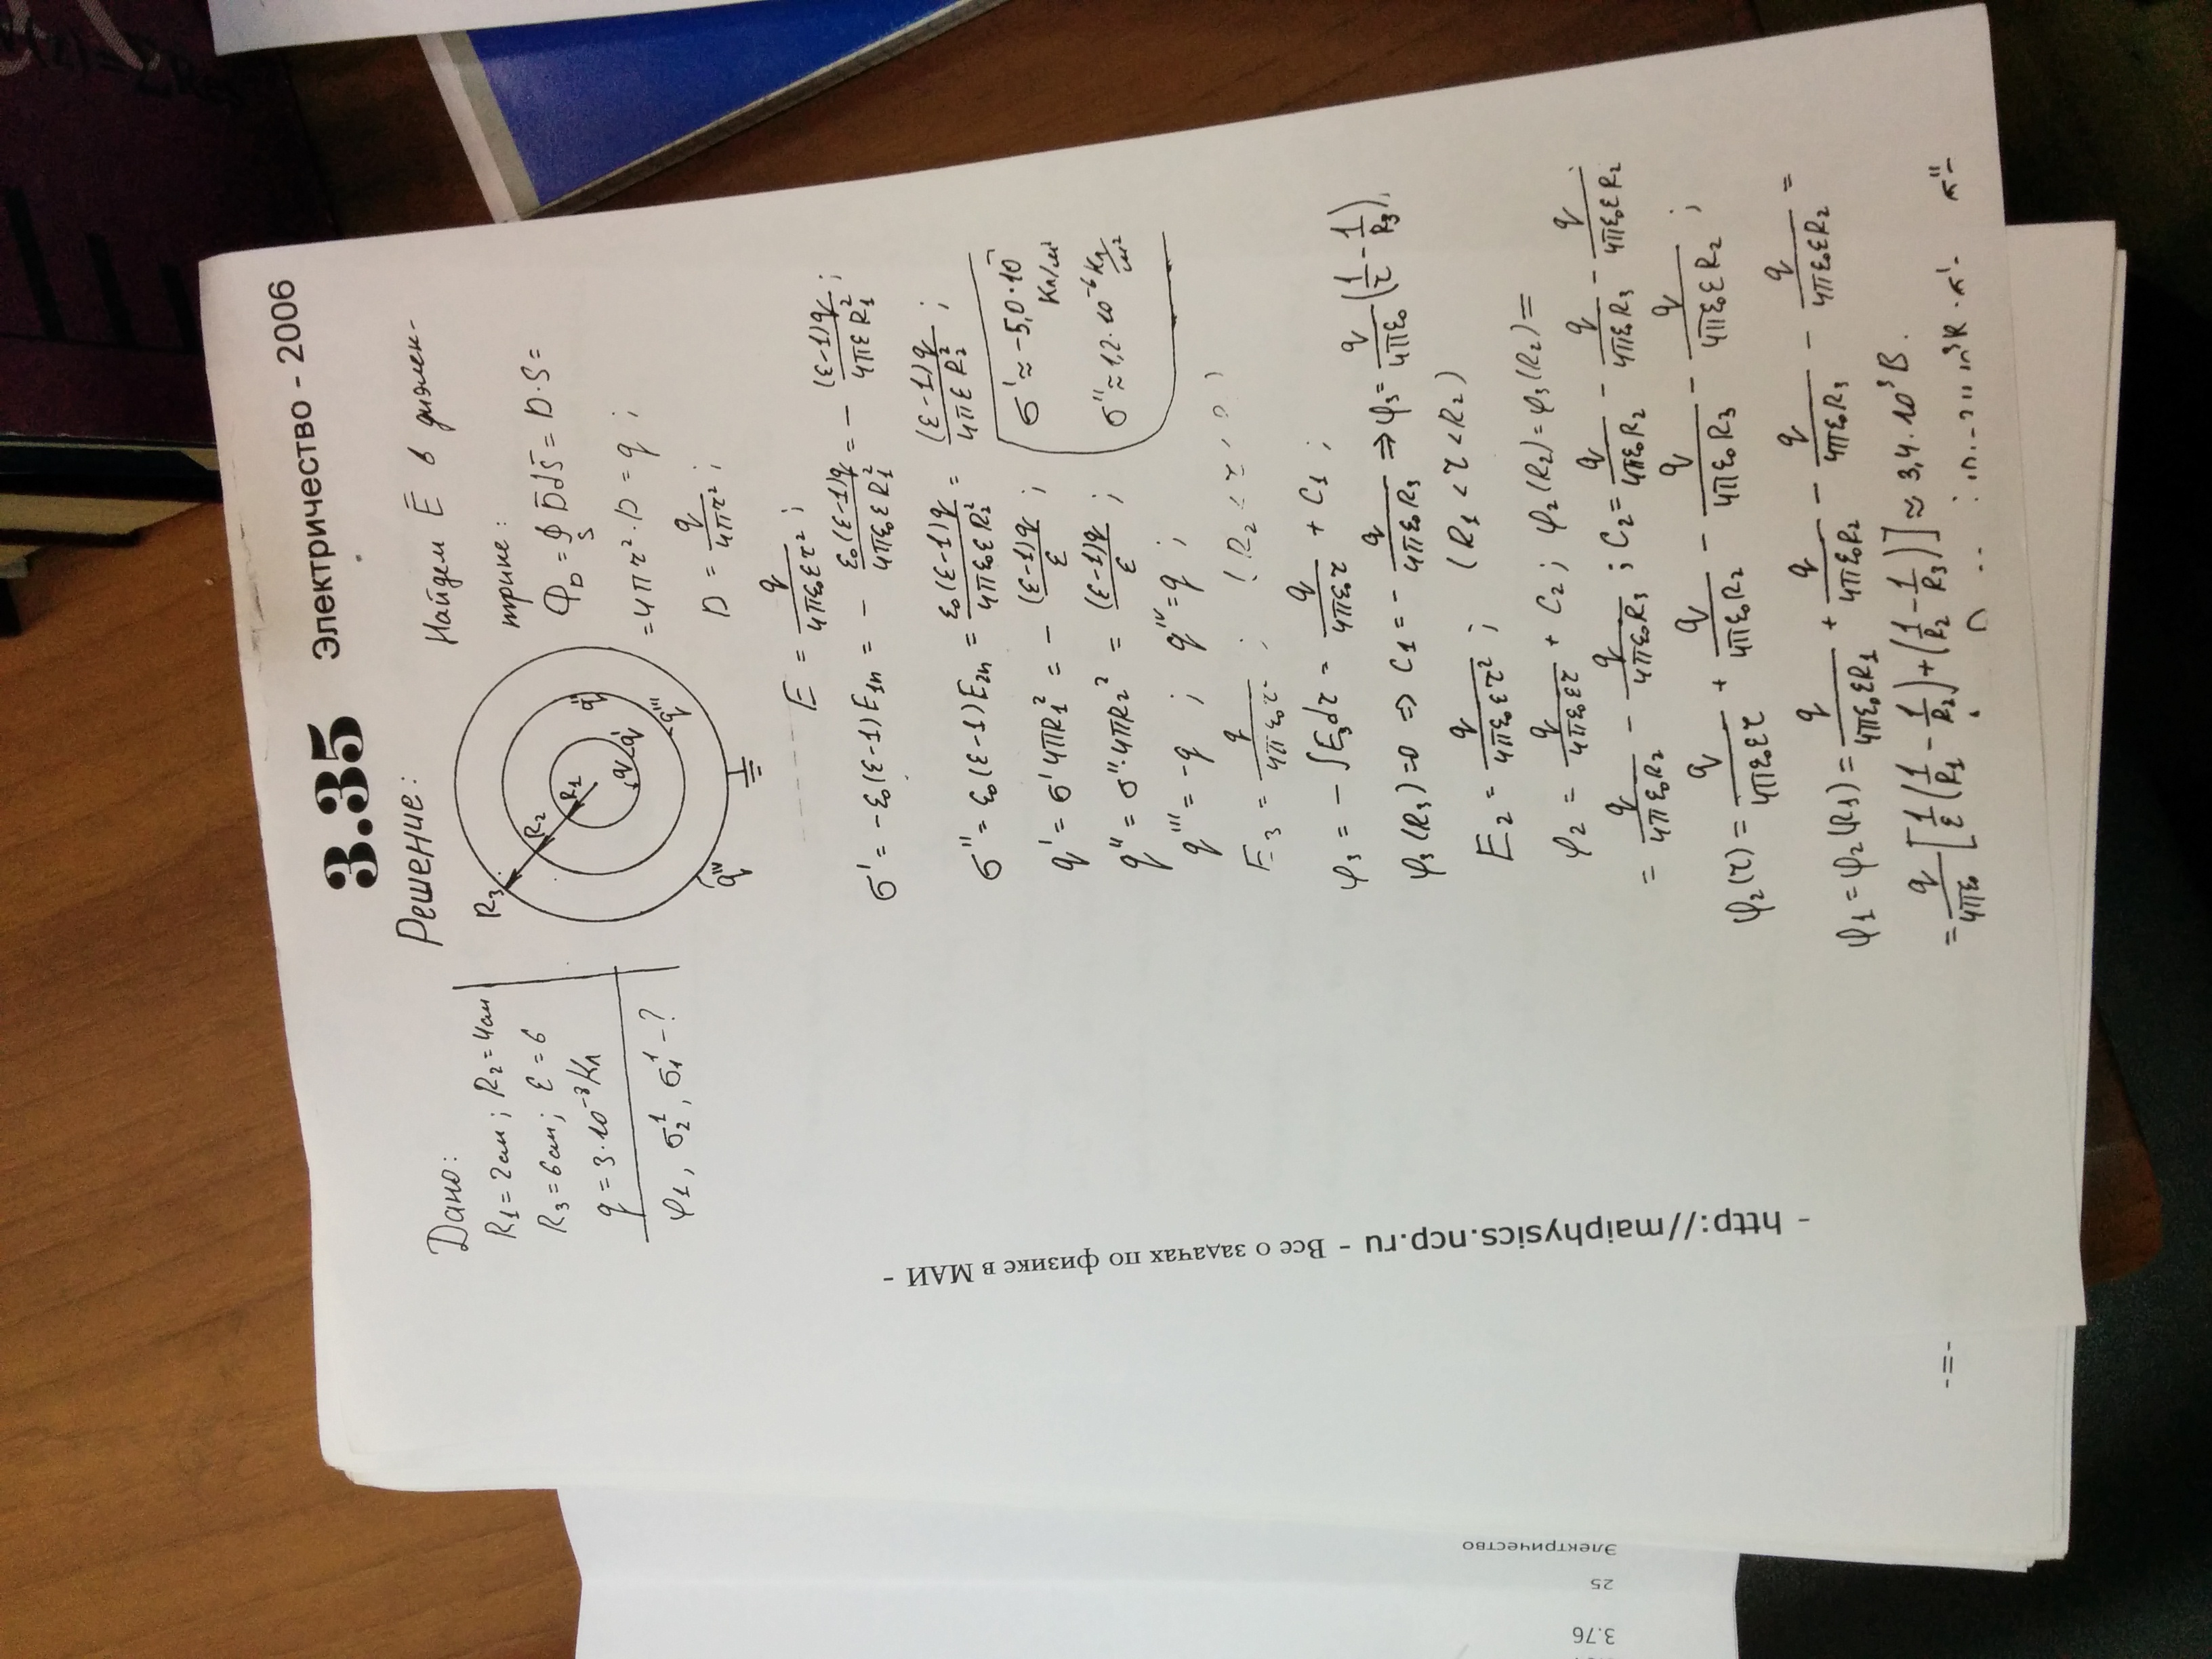 3.35 Электричество - 2006
Дано:
R₁ = 2 см; R₂ = 4 см
R₃ = 6 см; ε = 6
q = 3·10⁻⁸ Кл
φ₁, σ₂¹, σ₁¹ - ?
Решение:
R₃
R₂
R₁
q
q'
q''
q'''
q''''
Найдем Ē в диэлек-
трике:
Φ_D = ∮_S D̄dS̄ = D·S =
= 4πr²·D = q ;
D = q/(4πr²) ;
E = q/(4πε₀εr²) ;
σ' = -ε₀(ε-1)E₁ₙ = - ε₀(ε-1)q/(4πε₀εR₁²) = - (ε-1)q/(4πεR₁²) ;
σ'' = ε₀(ε-1)E₂ₙ = ε₀(ε-1)q/(4πε₀εR₂²) = (ε-1)q/(4πεR₂²) ;
q' = σ'4πR₁² = - (ε-1)q/ε ;
σ' ≈ -5,0·10
Кл/м²
q'' = σ''·4πR₂² = (ε-1)q/ε ;
σ'' ≈ 1,2·10⁻⁶ Кл/м²
q''' = -q ; q'''' = q ;
E₃ = q/(4πε₀r²) ;
φ₃ = - ∫E₃dr = q/(4πε₀r) + C₁ ;
φ₃(R₃) = 0 ⇒ C₁ = - q/(4πε₀R₃) ⇒ φ₃ = q/(4πε₀) (1/r - 1/R₃),
E₂ = q/(4πε₀εr²) ; (R₁ < r < R₂)
φ₂ = q/(4πε₀εr) + C₂ ; φ₂(R₂) = φ₃(R₂) =
= q/(4πε₀R₂) - q/(4πε₀R₃) ; C₂ = q/(4πε₀R₂) - q/(4πε₀R₃) - q/(4πε₀εR₂)
φ₂(r) = q/(4πε₀εr) + q/(4πε₀R₂) - q/(4πε₀R₃) - q/(4πε₀εR₂) ;
φ₁ = φ₂(R₁) = q/(4πε₀εR₁) + q/(4πε₀R₂) - q/(4πε₀R₃) - q/(4πε₀εR₂) =
= q/(4πε₀) [1/ε (1/R₁ - 1/R₂) + (1/R₂ - 1/R₃)] ≈ 3,4·10³ В.
- Все о задачах по физике в МАИ -
- http://maiphysics.ncp.ru -
-=-
Электричество
25
3.76